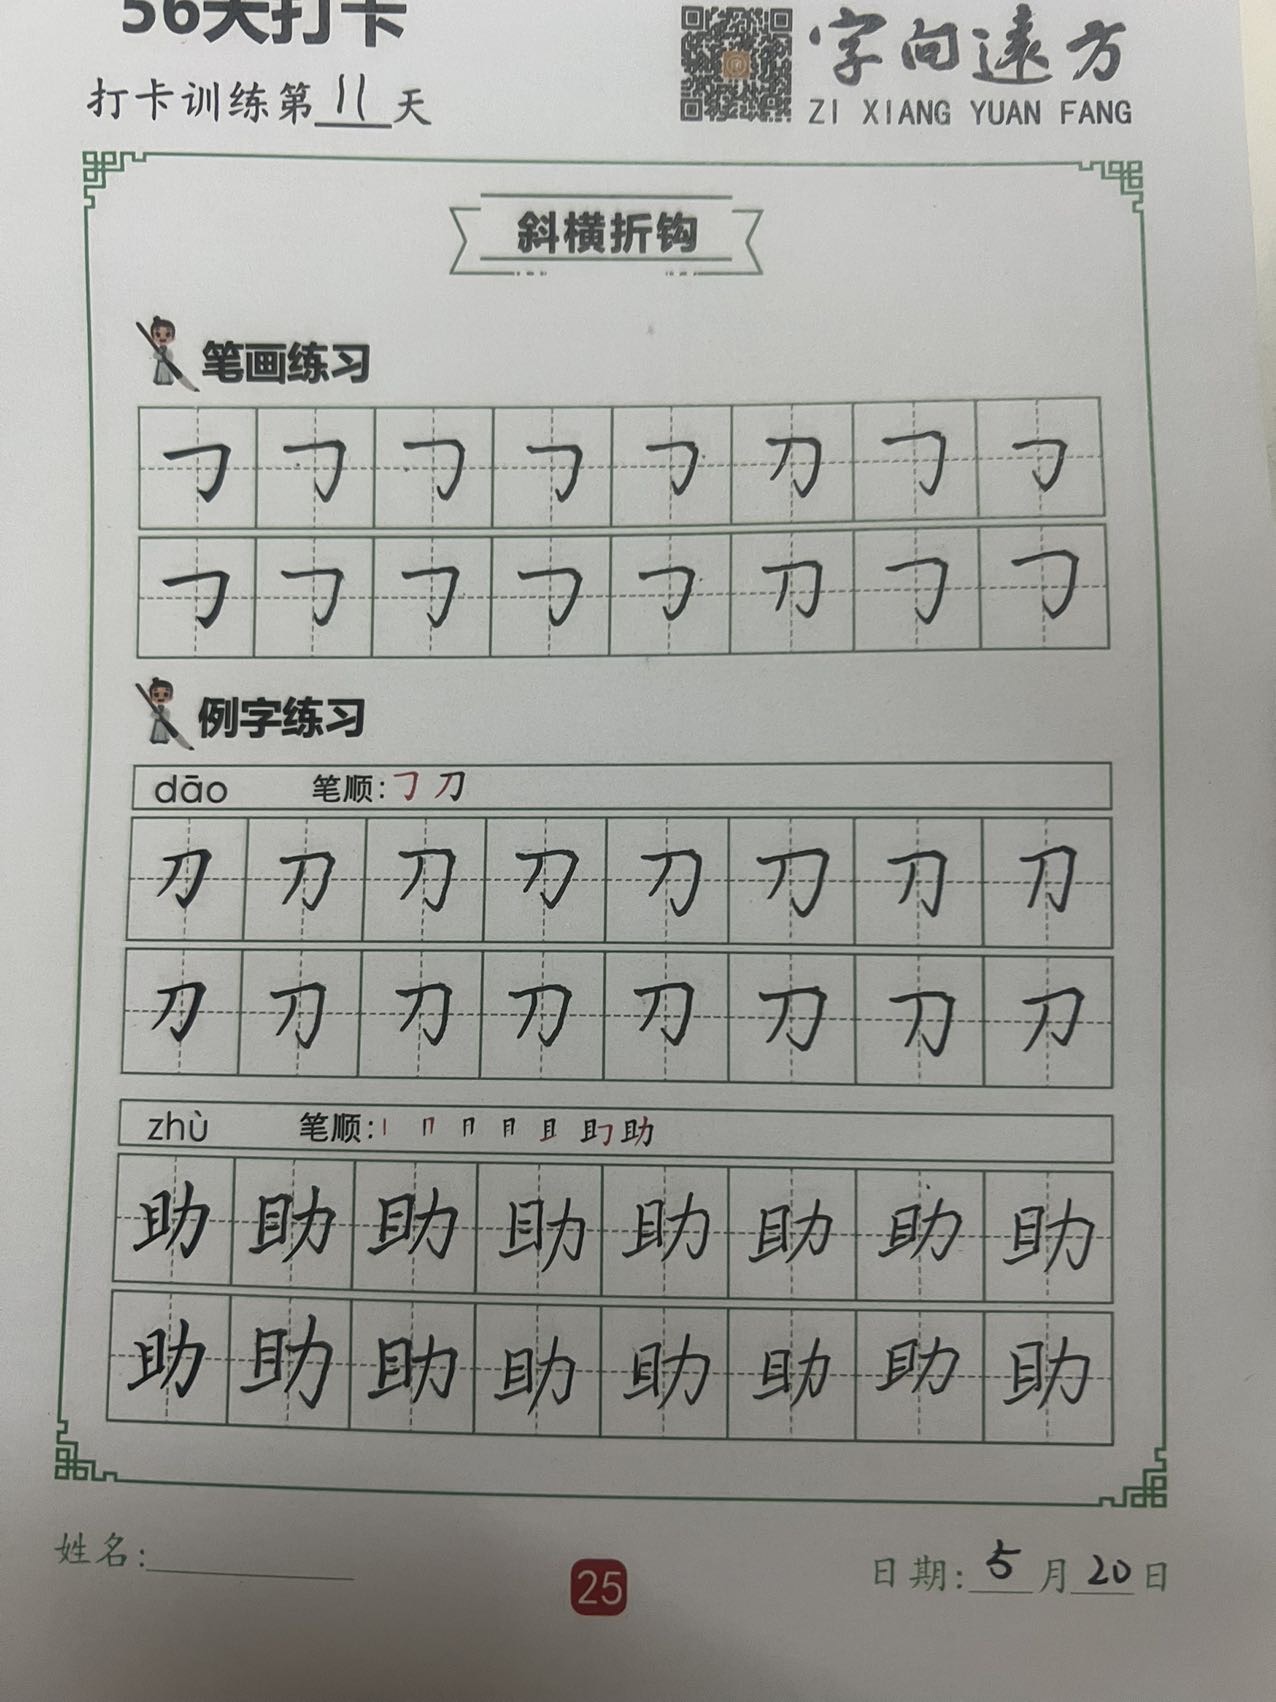 56天打卡
字向远方
ZI XIANG YUAN FANG
打卡训练第11天
斜横折钩
笔画练习
㇆ ㇆ ㇆ ㇆ ㇆ 刀 ㇆ ㇆
㇆ ㇆ ㇆ ㇆ ㇆ 刀 ㇆ ㇆
例字练习
dāo 笔顺: ㇆ 刀
刀 刀 刀 刀 刀 刀 刀 刀
刀 刀 刀 刀 刀 刀 刀 刀
zhù 笔顺: 丨 冂 月 月 且 助
助 助 助 助 助 助 助 助
助 助 助 助 助 助 助 助
姓名:
25
日期: 5月20日